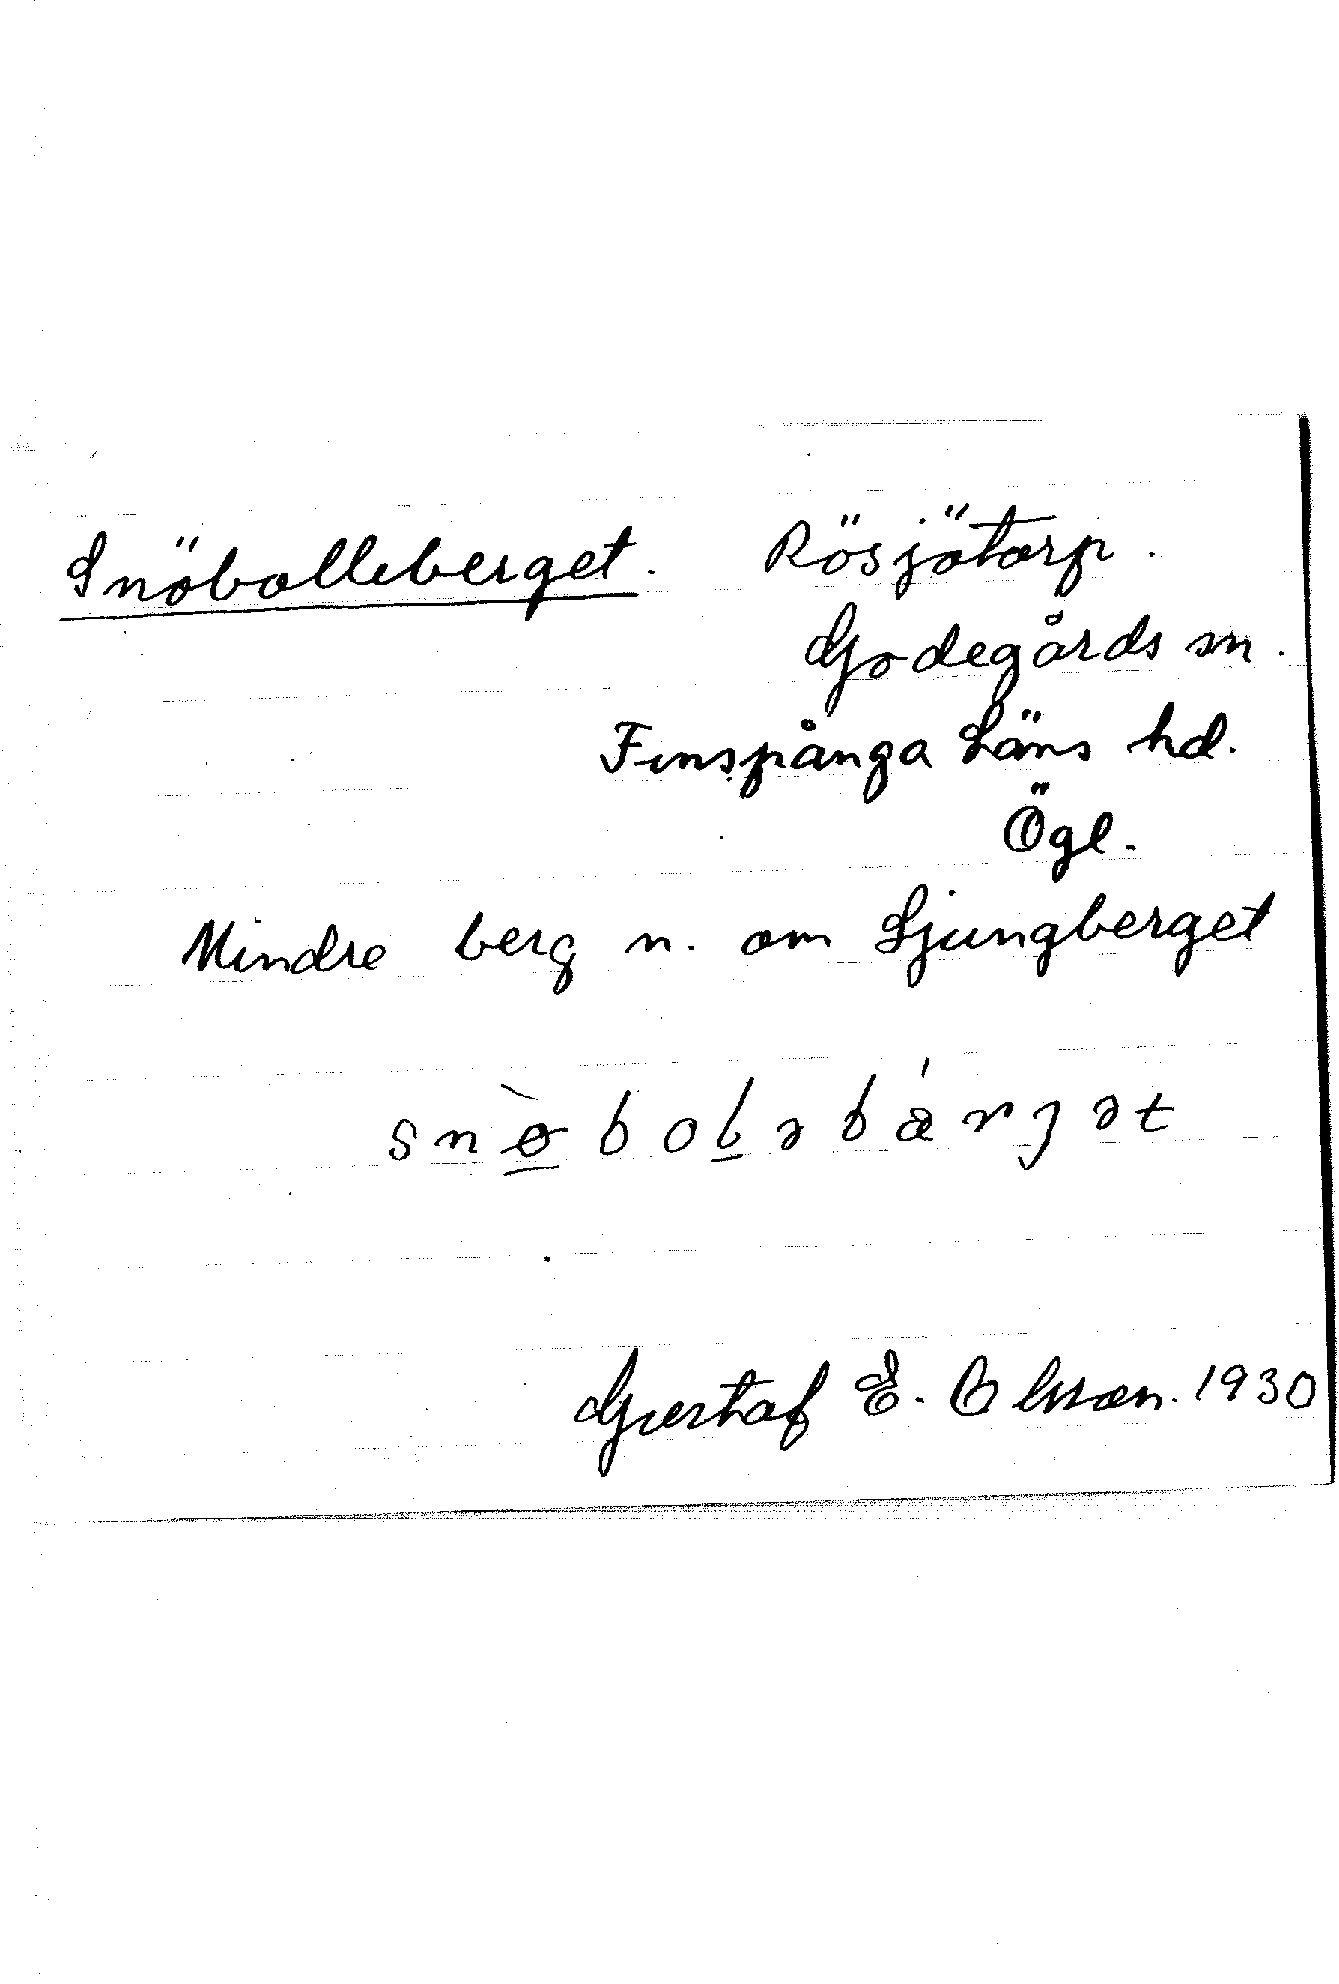 Snöbolleberget. Rösjötorp.
Godegårds sn.
Finspånga Läns hd.
Ögl.
Mindre berg n. om Ljungberget
Gustaf E. Olsson. 1930